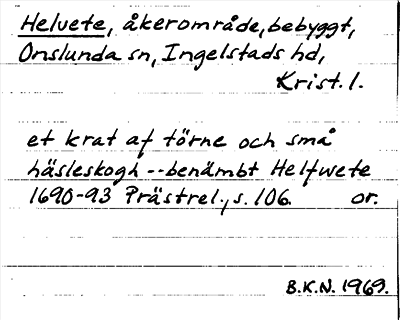 Helvete, åkerområde, bebyggt,
Onslunda sn, Ingelstads hd,
Krist. l.
et krat af törne och små
häsleskogh -- benämbt Helfwete
1690-93 Prästrel., s. 106. or.
B.K.N. 1969.